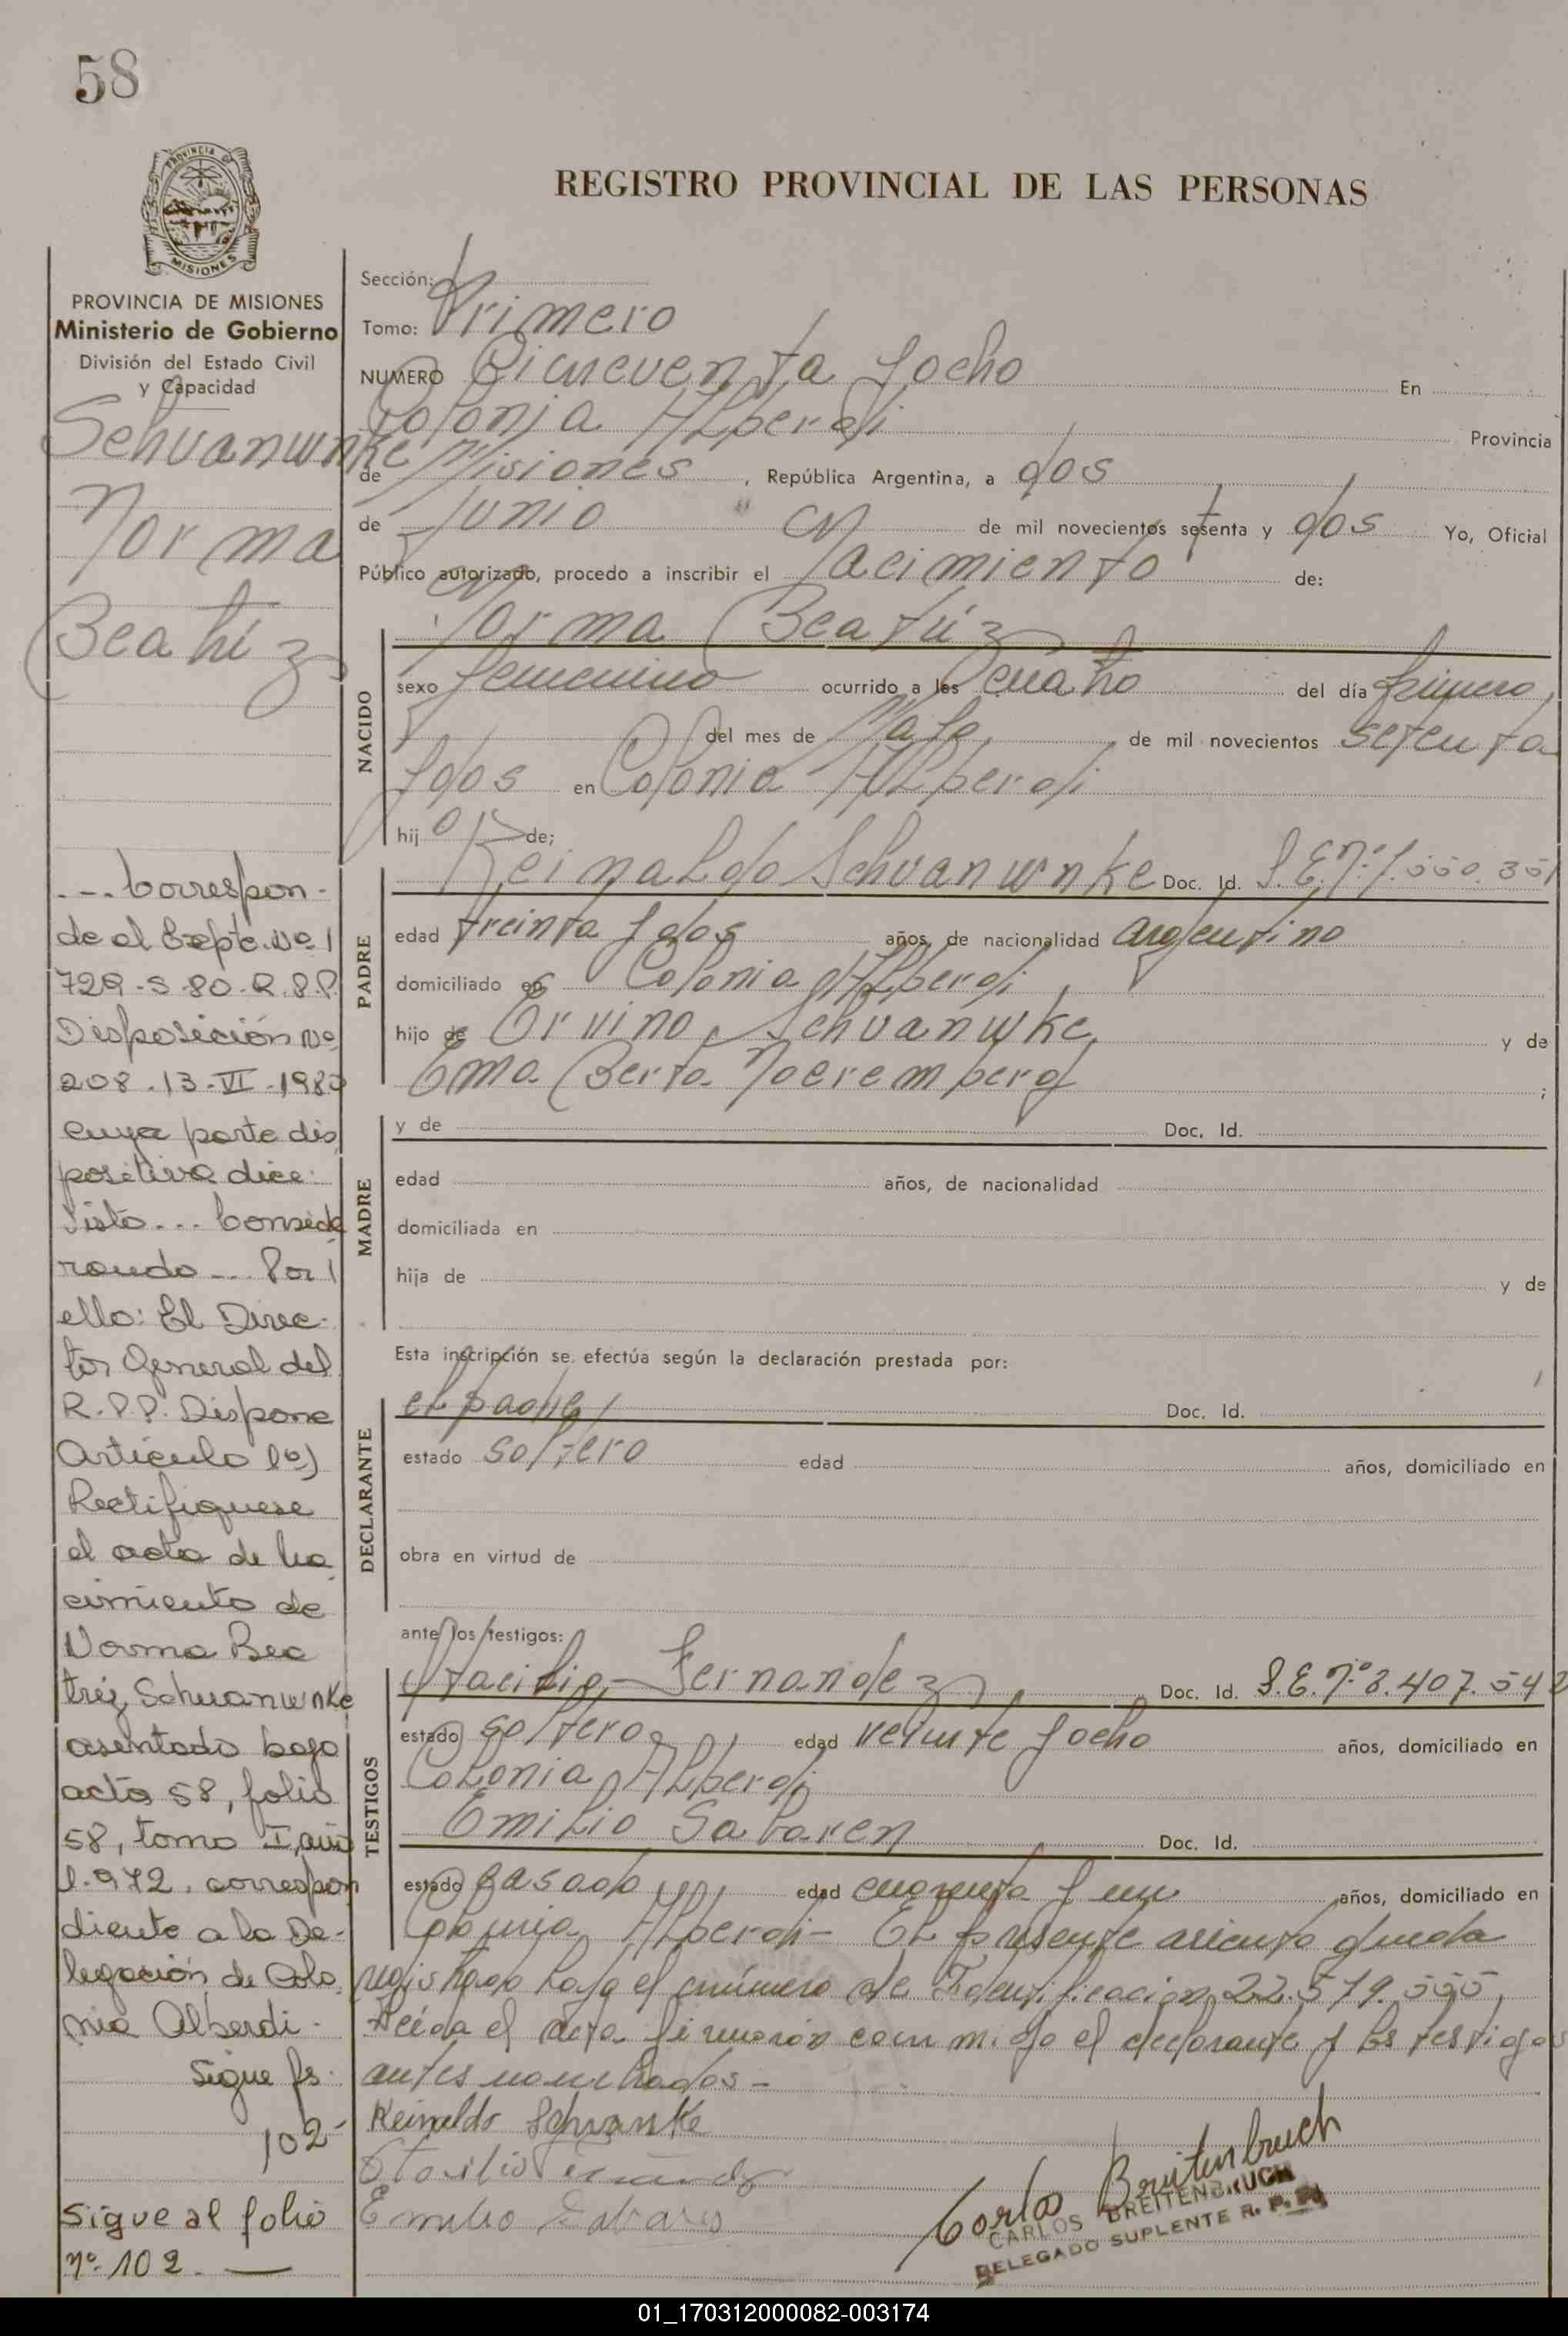 58
REGISTRO PROVINCIAL DE LAS PERSONAS
PROVINCIA DE MISIONES
Ministerio de Gobierno
División del Estado Civil
y Capacidad
Schuanwnke
Norma
Beatriz
Sección:
Tomo: Primero
NUMERO Cincuenta y ocho En
Colonia Alberdi Provincia
de Misiones, República Argentina, a dos
de Junio de mil novecientos setenta y dos Yo, Oficial
Público autorizado, procedo a inscribir el Nacimiento de:
Norma Beatriz
NACIDO
sexo femenino ocurrido a las cuatro del día primero
del mes de Mayo de mil novecientos setenta
y dos en Colonia Alberdi
hij a de;
PADRE
Reinaldo Schuanwnke Doc. Id.
edad treinta y dos años, de nacionalidad argentino
domiciliado en Colonia Alberdi
hijo de Ervino Schuanwke y de
Ema Berta Noeremberg ;
MADRE
y de Doc. Id.
edad años, de nacionalidad
domiciliada en
hija de y de
Esta inscripción se efectúa según la declaración prestada por:
DECLARANTE
el padre Doc. Id.
estado soltero edad años, domiciliado en
obra en virtud de
ante los testigos:
TESTIGOS
Fernandez Doc. Id. L.E.Nº 8.407.542
estado soltero edad veinte y ocho años, domiciliado en
Colonia Alberdi
Emilio Doc. Id.
estado casado edad cuarenta y un años, domiciliado en
Colonia Alberdi- El presente asiento queda
registrado bajo el número de Identificación 22.579.555
Leída el acta firmaron conmigo el declarante y los testigos
antes nombrados-
Reinaldo Schvanke
Emilio
Carlos Breitenbruch
CARLOS BREITENBRUCH
DELEGADO SUPLENTE R. P. P.
... Correspon-
de al Expte. Nº
729-S-80-R.P.P.
Disposición Nº
208.13-VI-1980
cuya parte dis
positiva dice:
Visto... Conside
rando... Por
ello: El Direc-
tor General del
R.P.P. Dispone
Artículo 1º)
Rectifiquese
el acta de na
cimiento de
Norma Bea
triz Schuanwnke
asentado bajo
acta 58, folio
58, tomo I, año
1.972, correspon
diente a la De-
legación de Colo
nia Alberdi.
Sigue fs.
102-
Sigue al folio
nº 102. —
01_170312000082-003174